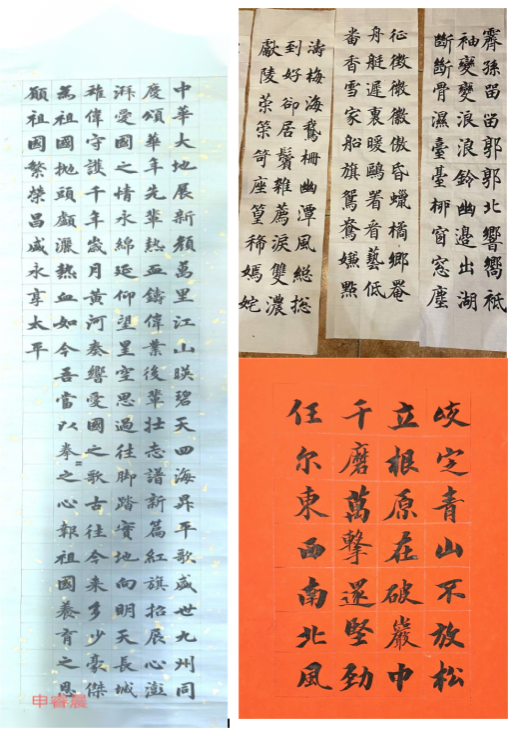 中華大地展新顏萬里江山暎碧天四海昇平歌盛世九州同
慶頌華年先輩熱血鑄偉業後輩壯志譜新篇紅旗招展心澎
湃愛國之情永綿延仰望星空思過往脚踏實地向明天長城
雄偉守護千年歲月黃河奏響愛國之歌古往今来多少豪傑
為祖國拋頭顱灑熱血如今吾當以拳々之心報祖國養育之恩
願祖國繁榮昌盛永享太平
申睿晨
霽孫留留郭郭北響嚮祗
袖變變浪浪鈴幽邊出湖
斷斷骨濕臺臺栁窗窓塵
征徵微徽傲昏蠟橘鄉罨
舟艇遲裏暖鷗署看藝低
畨香雪家船旗鴛鴦嫌點
濤梅海鵞柵幽潭風総捴
到好卻居鬢雜薦淚雙濃
獻陵荣築笴座篁稀嫣姹
咬定青山不放松
立根原在破巖中
千磨萬擊還堅勁
任尔東西南北風